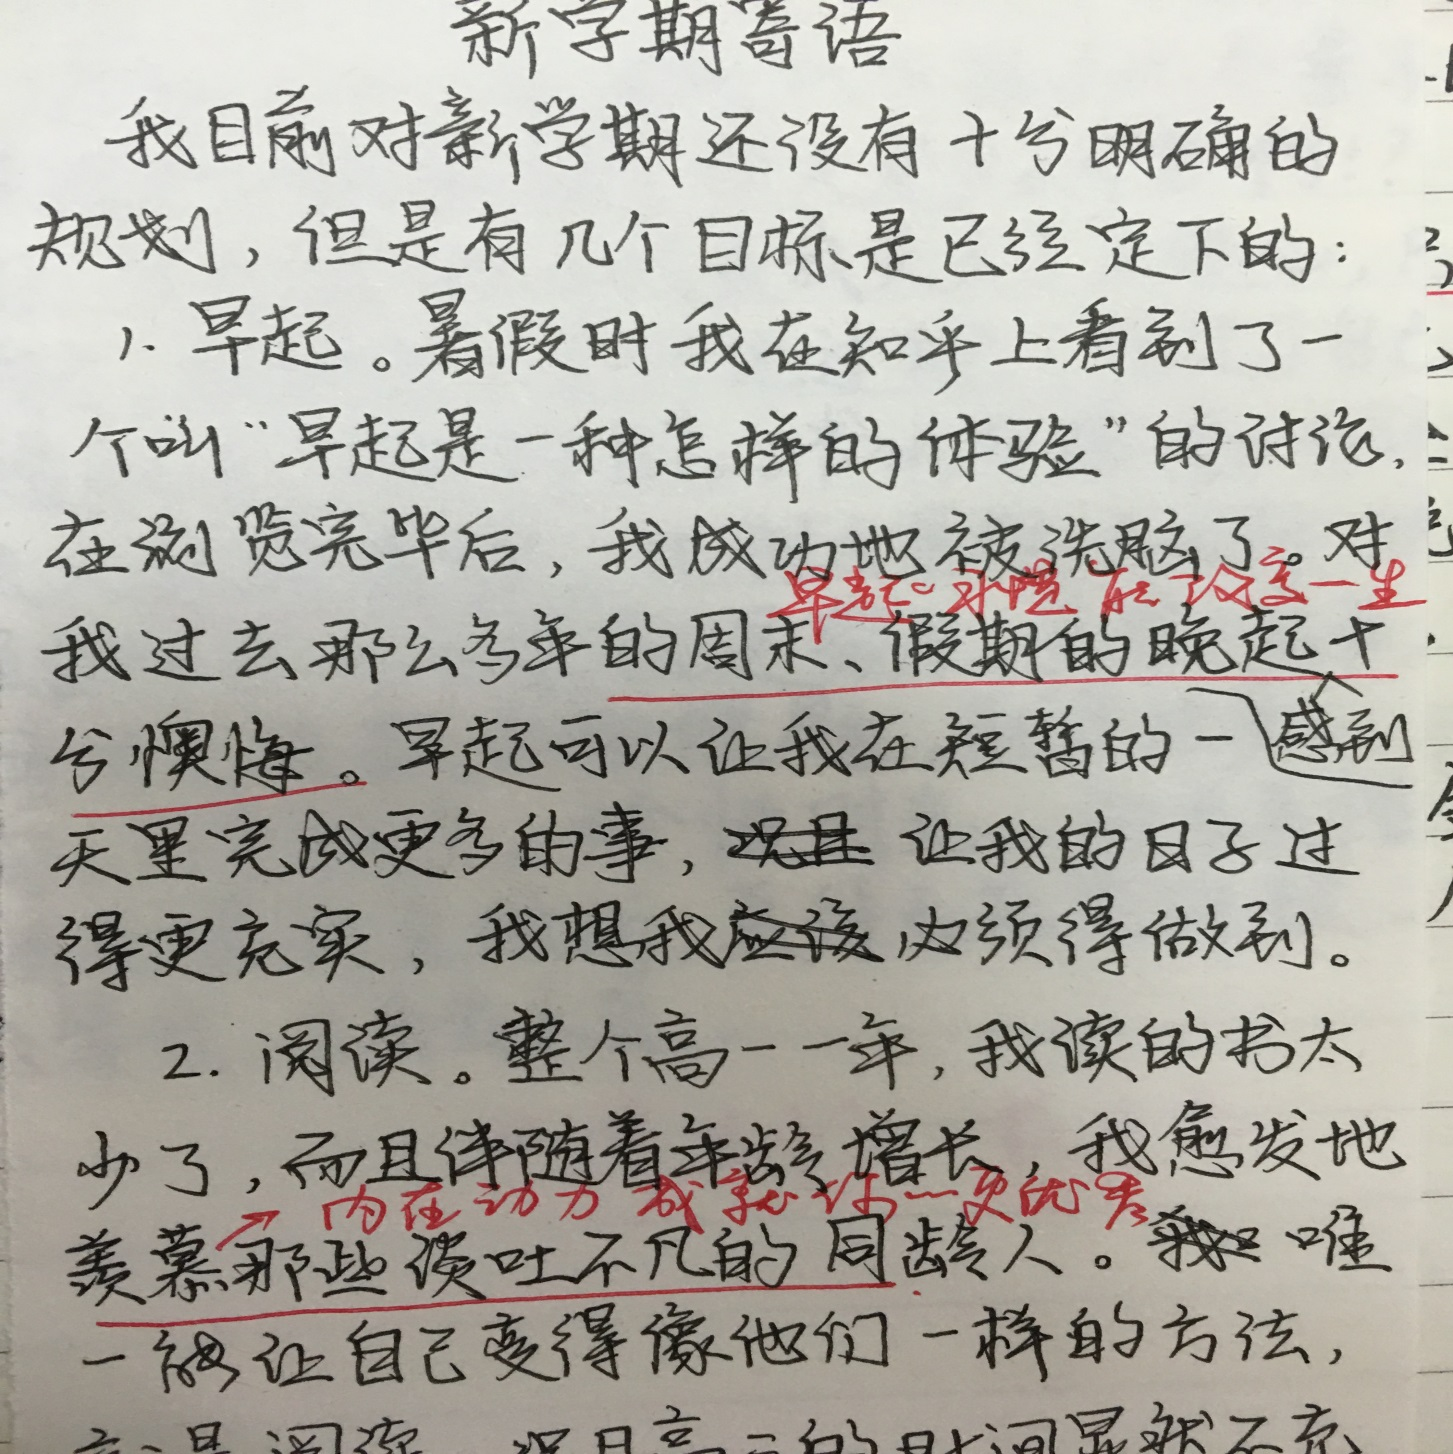 新学期寄语
我目前对新学期还没有十分明确的
规划，但是有几个目标是已经定下的：
1. 早起。暑假时我在知乎上看到了一
个叫“早起是一种怎样的体验”的讨论，
在浏览完毕后，我成功地被洗脑了。对
早起习惯能改变一生
我过去那么多年的周末、假期的晚起十
分懊悔。早起可以让我在短暂的一
感到
天里完成更多的事，况且让我的日子过
得更充实，我想我应该必须得做到。
2. 阅读。整个高一一年，我读的书太
少了，而且伴随着年龄增长，我愈发地
内在动力 成就 更优秀
羡慕那些谈吐不凡的同龄人。我 唯
一能让自己变得像他们一样的方法，